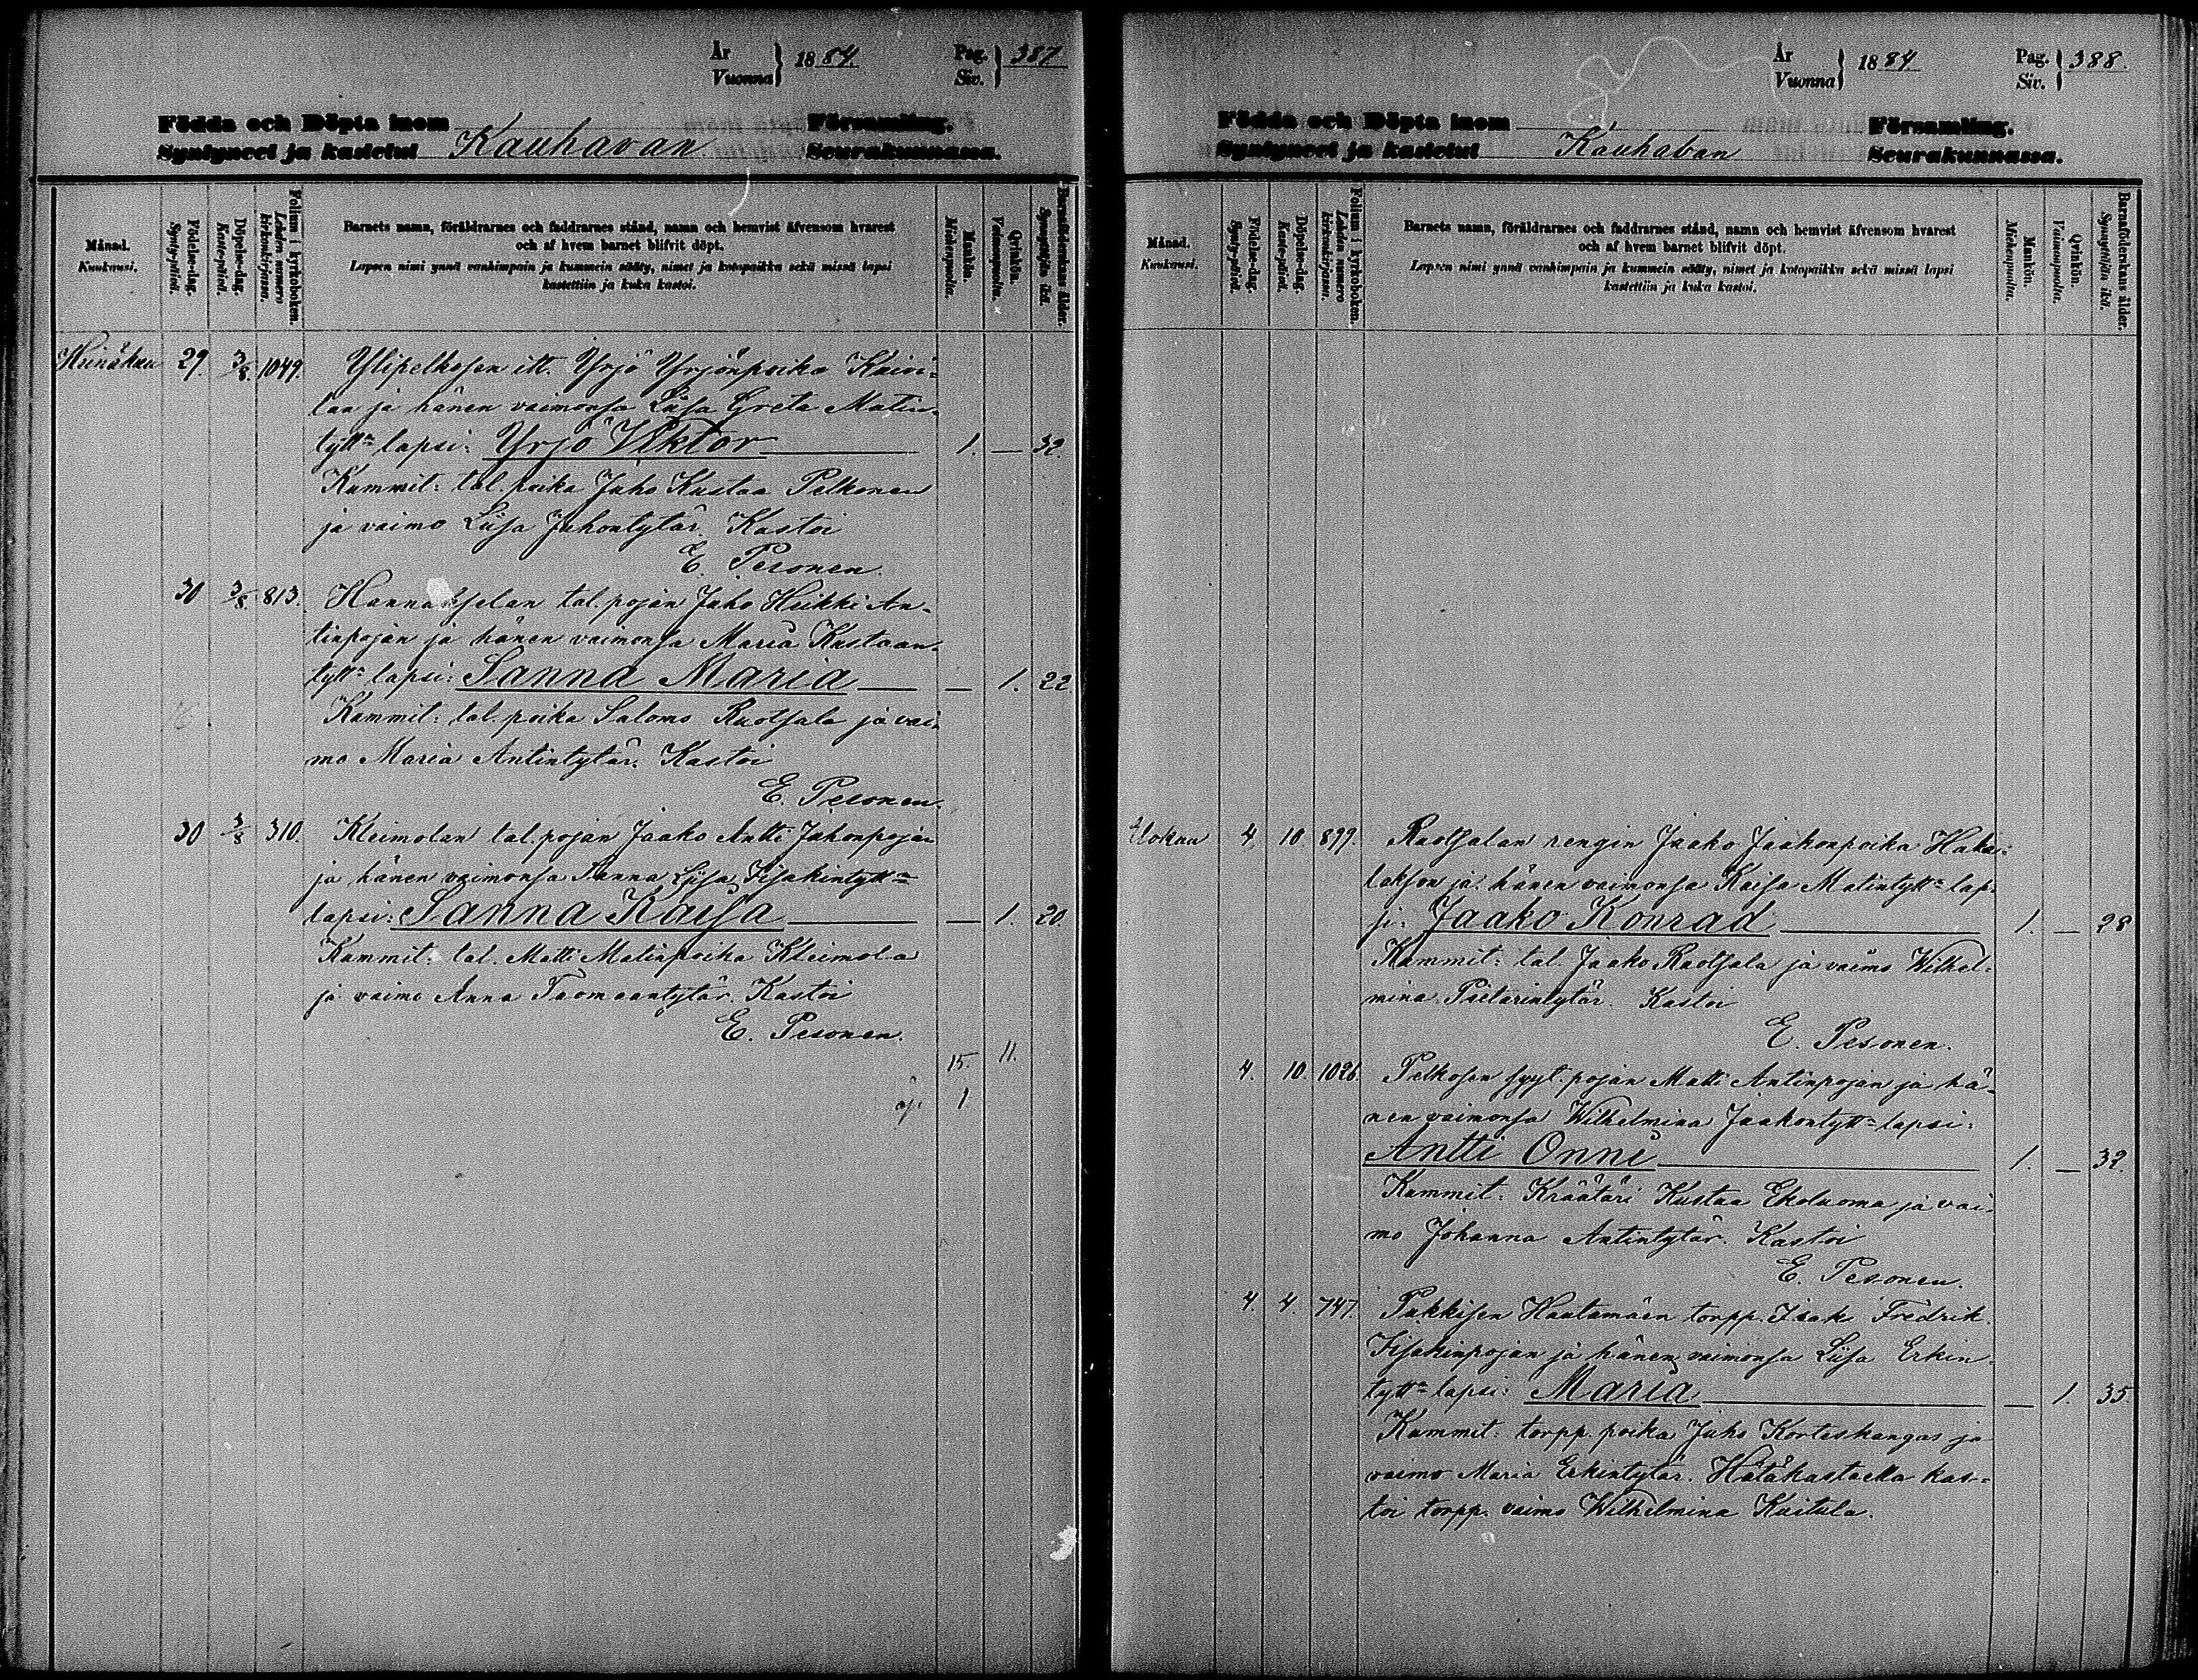 År
Vuonna } 1884.
Pag.
Siv. } 387
Födda och Döpta inom Församling.
Syntyneet ja kastetut Kauhavan Seurakunnassa.
Månad.
Kuukausi.
Födelse-dag.
Synty-päivä.
Döpelse-dag.
Kaste-päivä.
Folium i kyrkoboken.
Lehden numero kirkonkirjassa.
Barnets namn, föräldrarnes och faddrarnes stånd, namn och hemvist äfvensom hvarest
och af hvem barnet blifvit döpt.
Lapsen nimi ynnä vanhimpain ja kummein sääty, nimet ja kotopaikka sekä missä lapsi
kastettiin ja kuka kastoi.
Mankön.
Miehenpuolia.
Qvinkön.
Vaimonpuolia.
Barnaföderskans ålder.
Synnyttäjän ikä.
Heinäkuu 29. 3/8. 1049. Ylipelkosen itt. Yrjö Yrjönpoika
lan ja hänen vaimonsa Liisa Greta Matin-
tytt:n lapsi: Yrjö Viktor 1. — 32.
Kummit: tal. poika Juho Kustaa Pelkonen
ja vaimo Liisa Juhontytär. Kastoi
E. Pesonen.
30 3/8. 813. Hannukselan tal. pojan Juho Heikki An-
tinpojan ja hänen vaimonsa Maria Kustaan-
tytt:n lapsi: Sanna Maria — 1. 22
Kummit: tal. poika Salomo Ruotsala ja vai-
mo Maria Antintytär. Kastoi
E. Pesonen.
30 3/8 310. Kleimolan tal. pojan Jaako Antti Juhonpojan
ja hänen vaimonsa Sanna Liisa Iisakintytt:n
lapsi: Sanna Kaisa — 1. 20.
Kummit: tal. Matti Matinpoika Kleimola
ja vaimo Anna Tuomaantytär. Kastoi
E. Pesonen.
15. 11.
1
År
Vuonna } 1884
Pag.
Siv. } 388.
Födda och Döpta inom Församling.
Syntyneet ja kastetut Kauhavan Seurakunnassa.
Månad.
Kuukausi.
Födelse-dag.
Synty-päivä.
Döpelse-dag.
Kaste-päivä.
Folium i kyrkoboken.
Lehden numero kirkonkirjassa.
Barnets namn, föräldrarnes och faddrarnes stånd, namn och hemvist äfvensom hvarest
och af hvem barnet blifvit döpt.
Lapsen nimi ynnä vanhimpain ja kummein sääty, nimet ja kotopaikka sekä missä lapsi
kastettiin ja kuka kastoi.
Mankön.
Miehenpuolia.
Qvinkön.
Vaimonpuolia.
Barnaföderskans ålder.
Synnyttäjän ikä.
Elokuu 4 10. 899. Ruotsalan rengin Jaako Jaakonpoika
ja hänen vaimonsa Kaisa Matintytt:n lap-
si: Jaako Konrad 1. — 28
Kummit: tal. Jaako Ruotsala ja vaimo Wilhel-
mina Pietarintytär. Kastoi
E. Pesonen.
4. 10. 1026. Pelkosen syyt. pojan Matti Antinpojan ja hä-
nen vaimonsa Wilhelmina Jaakontytt:n lapsi:
Antti Onni 1. — 32.
Kummit: Kräätäri Kustaa Ekoluoma ja vai-
mo Johanna Antintytär. Kastoi
E. Pesonen.
4. 4. 747. Pukkisen Hautamäen torpp. Isak Fredrik
Iisakinpojan ja hänen vaimonsa Liisa Erkin-
tytt:n lapsi: Maria — 1. 35.
Kummit: torpp. poika Juho Korteskangas ja
vaimo Maria Erkintytär. Hätäkasteella kas-
toi torpp. vaimo Wilhelmina Kuitula.